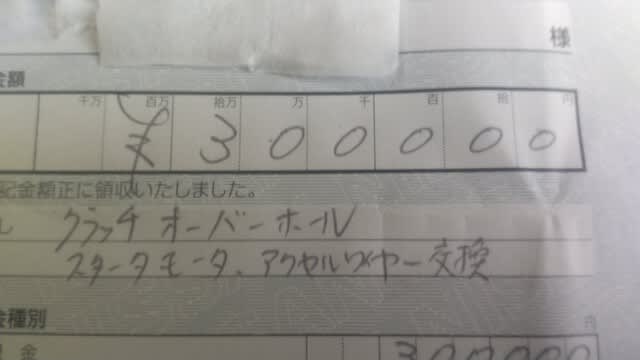 様
金額
千万 百万 拾万 万 千 百 拾 円
¥ 3 0 0 0 0 0
記金額正に領収いたしました。
クラッチオーバーホール
スタータモータ、アクセルワイヤー交換
金種別
円
金 300000